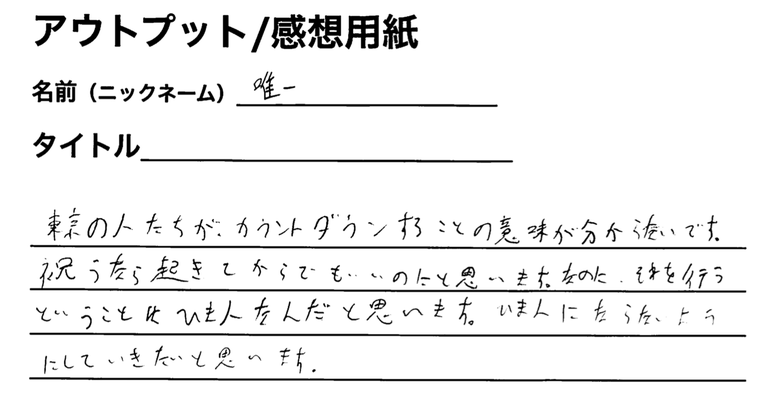 アウトプット/感想用紙
名前（ニックネーム） 唯一
タイトル
東京の人たちが、カウントダウンすることの意味が分からないです。
祝うなら起きてからでもいいのにと思います。なのに、それを行う
ということはひま人なんだと思います。ひま人にならないよう
にしていきたいと思います。